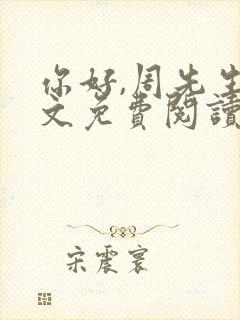 你好,周先生
文免费阅读
宋震寰